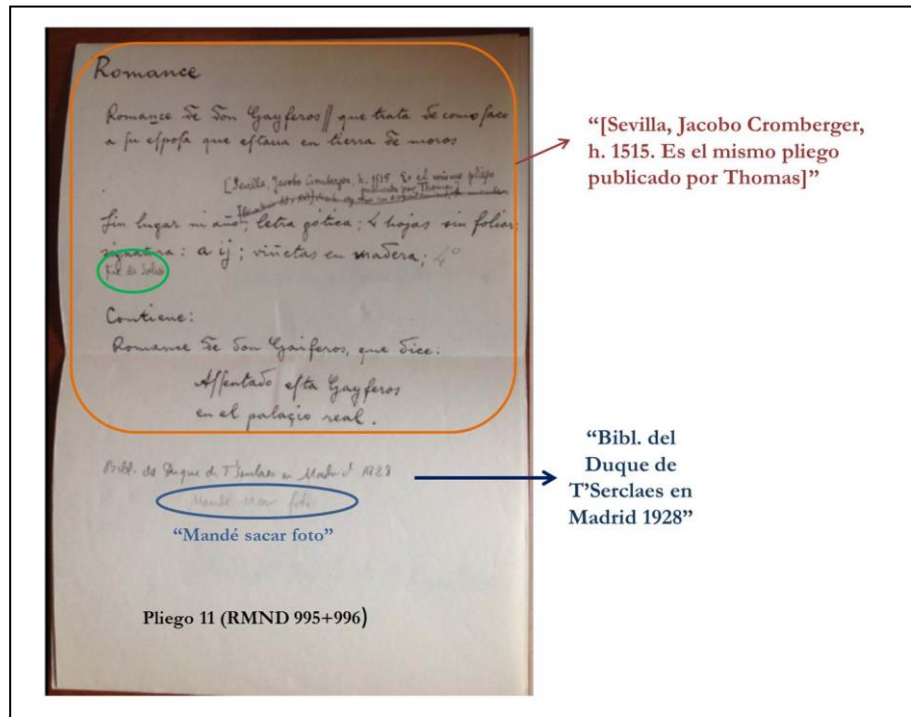 Romance
Romance de don Gayferos || que trata de como ſaco
a ſu eſpoſa que eſtaua en tierra de moros
[Sevilla, Jacobo Cromberger, h. 1515. Es el mismo pliego
publicado por Thomas]
Sin lugar ni año; letra gótica; 4 hojas sin foliar;
signatura: a ij; viñetas en madera; 4º
Fué de Salvá
Contiene:
Romance de don Gaiferos, que dice:
Aſſentado eſta Gayferos
en el palaçio real.
Bibl. del Duque de T'Serclaes en Madrid 1928
Mandé sacar foto
“Mandé sacar foto”
Pliego 11 (RMND 995+996)
“[Sevilla, Jacobo Cromberger,
h. 1515. Es el mismo pliego
publicado por Thomas]”
“Bibl. del
Duque de
T’Serclaes en
Madrid 1928”